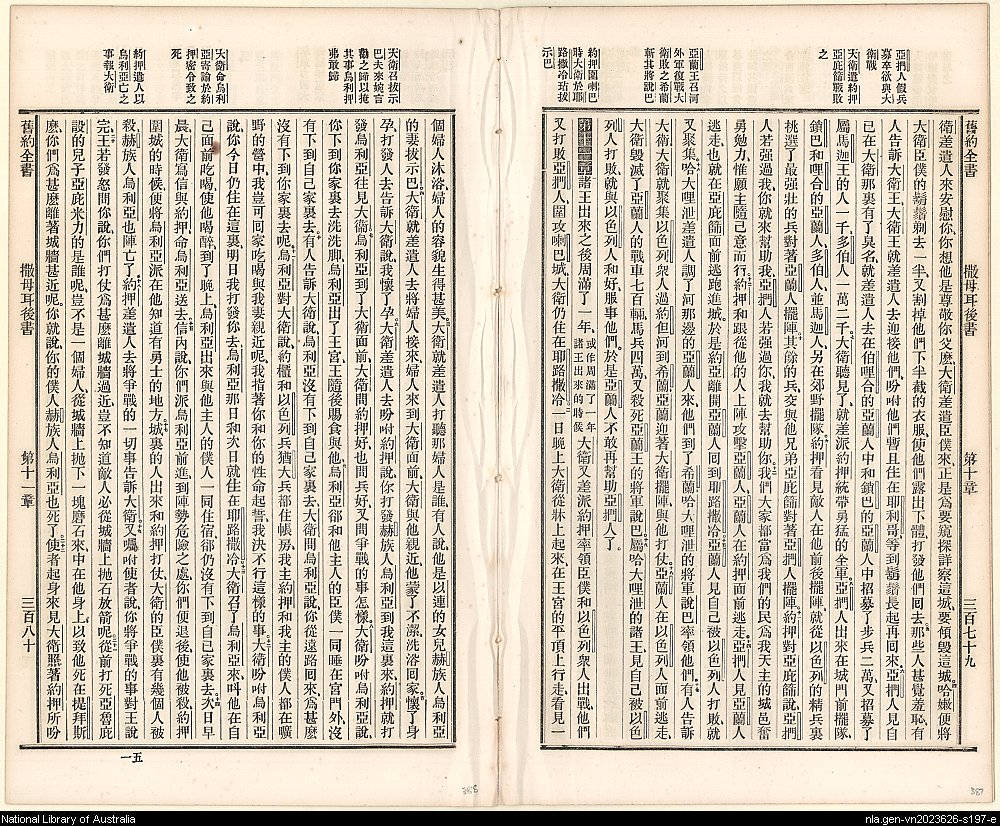 舊約全書 撒母耳後書 第十章 三百七十九
亞捫人假兵
募卒欲與大
衛戰
大衛遣約押
亞庇篩戰敗
之
亞蘭王召河
外軍復戰大
衛敗之希蘭
斬其將說巴
約押圍喇巴
時大衛於耶
路撒冷玷拔
示巴
衛差遣人來安慰你你想他是尊敬你父麽大衛差遣臣僕來正是爲要窺探詳察這城要傾毀這城哈嫩便將
大衛臣僕的鬍鬚剃去一半又割掉他們下半截的衣服使他們露出下體打發他們囘去那些人甚覺羞恥有
人告訴大衛王大衛王就差遣人去迎接他們吩咐他們暫且住在耶利哥等到鬍鬚長起再囘來亞捫人見自
己在大衛那裏有了臭名就差遣人去在伯哩合的亞蘭人中和鎖巴的亞蘭人中招募了步兵二萬又招募了
屬馬迦王的人一千多伯人一萬二千大衛聽見了就差派約押統帶勇猛的全軍亞捫人出來在城門前擺隊
鎖巴和哩合的亞蘭人多伯人並馬迦人另在郊野擺隊約押看見敵人在他前後擺隊就從以色列的精兵裏
挑選了最强壯的兵對著亞蘭人擺陣其餘的兵交與他兄弟亞庇篩對著亞捫人擺陣約押對亞庇篩說亞捫
人若强過我你就來幫助我亞捫人若强過你我就去幫助你我們大家都當爲我們的民爲我天主的城邑奮
勇勉力惟願主隨己意而行約押和跟從他的人上陣攻擊亞蘭人亞蘭人在約押面前逃走亞捫人見亞蘭人
逃走也就在亞庇篩面前逃跑進城於是約亞離開亞蘭人囘到耶路撒冷亞蘭人見自己被以色列人打敗就
又聚集哈大哩泄差遣人調了河那邊的亞蘭人來他們到了希蘭哈大哩泄的將軍說巴率領他們有人告訴
大衛大衛就聚集以色列衆人過約但河到希蘭亞蘭迎著大衛擺陣與他打仗亞蘭人在以色列人面前逃走
大衛毀滅了亞蘭人的戰車七百輛馬兵四萬又殺死亞蘭王的將軍說巴屬哈大哩泄的諸王見自己被以色
列人打敗就與以色列人和好服事他們於是亞蘭人不敢再幫助亞捫人了
第十一章諸王出來之後周滿了一年或作周滿了一年諸王出來的時候大衛又差派約押率領臣僕和以色列衆人出戰他們
又打敗亞捫人圍攻喇巴城大衛仍住在耶路撒冷一日晚上大衛從牀上起來在王宮的平頂上行走看見一
大衛召拔示
巴夫來婉言
勸之歸以掩
其事烏利押
弗敢歸
大衛命烏利
亞寄諭於約
押密令致之
死
約押遣人以
烏利亞亡之
事報大衛
個婦人沐浴婦人的容貌生得甚美大衛就差遣人打聽那婦人是誰有人說他是以連的女兒赫族人烏利亞
的妻拔示巴大衛就差遣人去將婦人接來婦人來到大衛面前大衛與他親近他蒙了不潔洗浴囘家懷了身
孕打發人去告訴大衛說我懷了孕大衛差遣人去吩咐約押說你打發赫族人烏利亞到我這裏來約押就打
發烏利亞往見大衛烏利亞到了大衛面前大衛問約押好也問兵好又問爭戰的事怎樣大衛吩咐烏利亞說
你下到你家裏去洗洗脚烏利亞出了王宮王隨後賜食與他烏利亞卻和他主人的臣僕一同睡在宮門外沒
有下到自己家裏去有人告訴大衛說烏利亞沒有下到自己家裏去大衛問烏利亞說你從遠路囘來爲甚麽
沒有下到你家裏去呢烏利亞對大衛說約櫃和以色列兵猶大兵都住帳房我主約押和我主的僕人都在曠
野的營中我豈可囘家吃喝與我妻親近呢我指著你和你的性命起誓我決不行這樣的事大衛吩咐烏利亞
說你今日仍住在這裏明日我打發你去烏利亞那日和次日就住在耶路撒冷大衛召了烏利亞來叫他在自
己面前吃喝使他喝醉到了晚上烏利亞出來與他主人的僕人一同住宿卻仍沒有下到自己家裏去次日早
晨大衛寫信與約押命烏利亞送去信內說你們派烏利亞前進到陣勢危險之處你們便退後使他被殺約押
圍城的時候便將烏利亞派在他知道有勇士的地方城裏的人出來和約押打仗大衛的臣僕裏有幾個人被
殺赫族人烏利亞也陣亡了約押差遣人去將爭戰的一切事告訴大衛又囑咐使者說你將爭戰的事對王說
完王若發怒問你說你們打仗爲甚麽離城牆過近豈不知道敵人必從城牆上抛石放箭呢從前打死亞魯庇
設的兒子亞庇米力的是誰呢豈不是一個婦人從城牆上抛下一塊磨石來中在他身上以致他死在提拜斯
麽你們爲甚麽離著城牆甚近呢你就說你的僕人赫族人烏利亞也死了使者起身來見大衛照著約押所吩
舊約全書 撒母耳後書 第十一章 三百八十
五一
388
387
National Library of Australia
nla.gen-vn2023626-s197-e